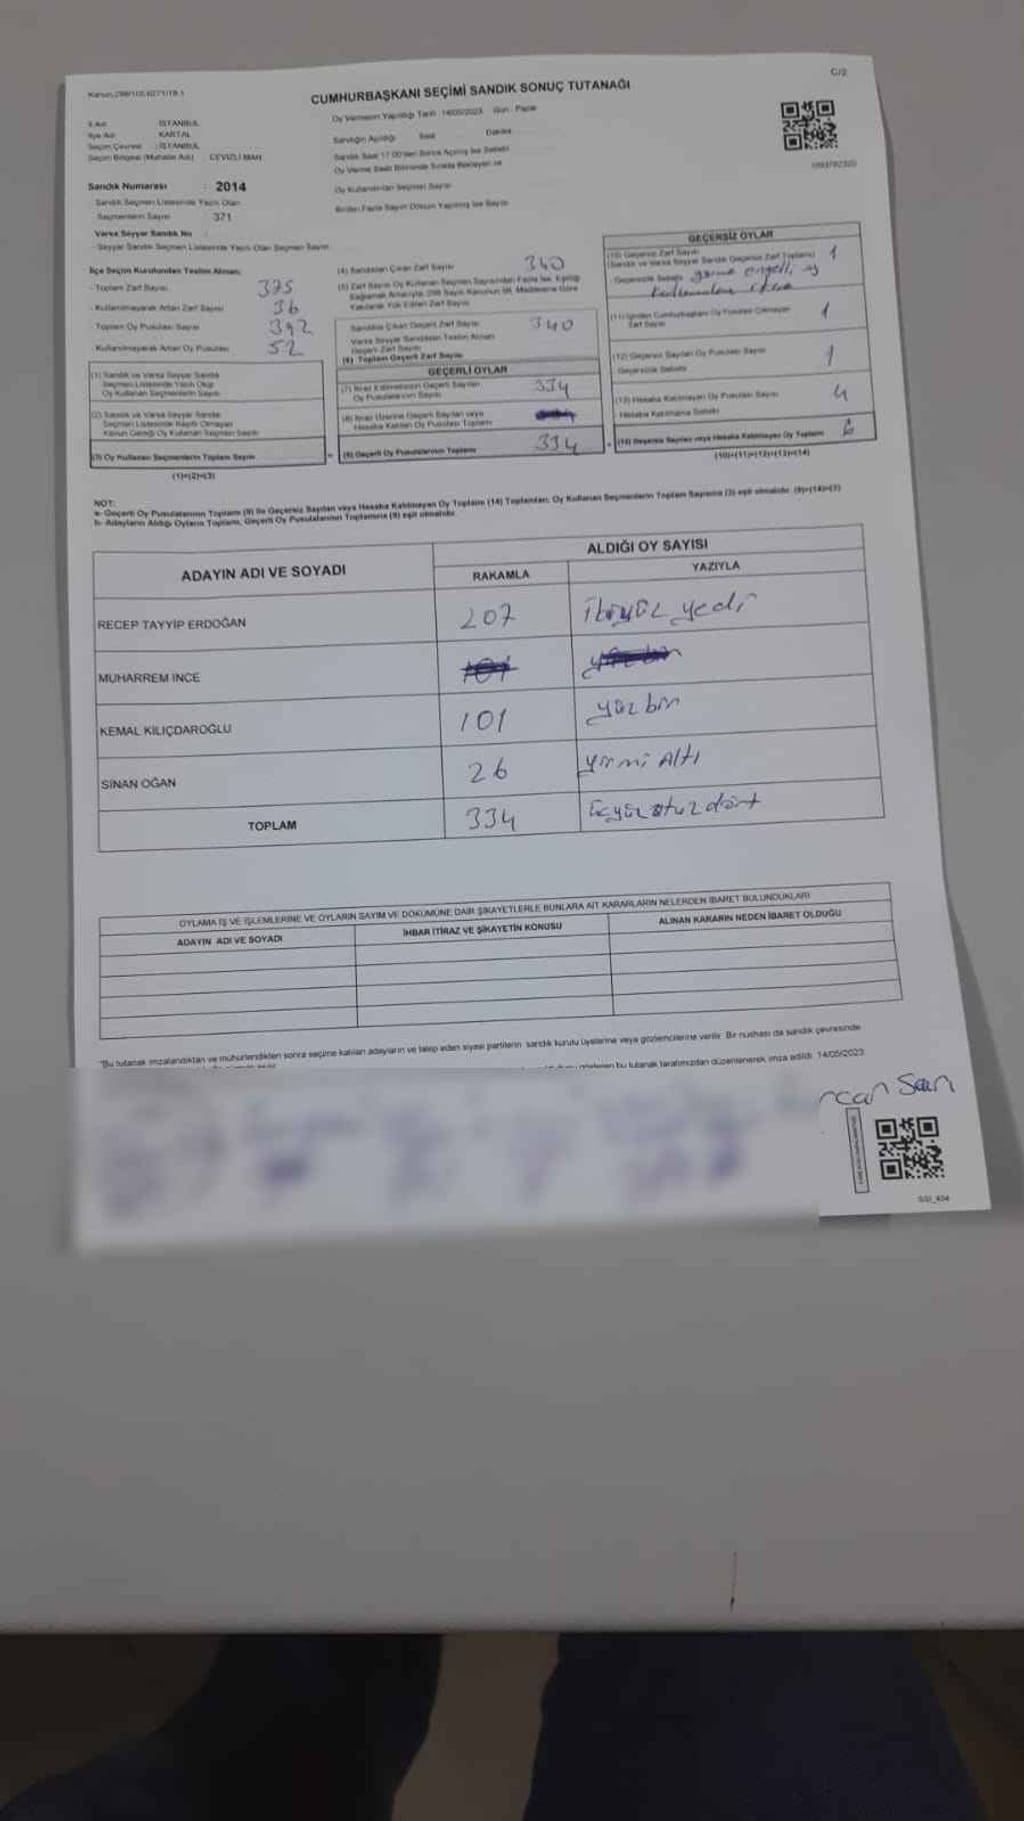 C/2
CUMHURBAŞKANI SEÇİMİ SANDIK SONUÇ TUTANAĞI
Oy Vermenin Yapıldığı Tarih : 14/05/2023 Gün : Pazar
İli Adı : İSTANBUL
İlçe Adı : KARTAL
Seçim Çevresi : İSTANBUL
Seçim Bölgesi (Mahalle Adı) : CEVİZLİ MAH.
Sandığın Açıldığı Saat Dakika
Sandık Numarası : 2014
Sandık Seçmen Listesinde Yazılı Olan
Seçmenlerin Sayısı : 371
Varsa Seyyar Sandık No
- Seyyar Sandık Seçmen Listesinde Yazılı Olan Seçmen Sayısı
Oy Kullandırılan Seçmen Sayısı
Birden Fazla Sayım Döküm Yapılmış İse Sayısı
İlçe Seçim Kurulundan Teslim Alınan;
- Toplam Zarf Sayısı 375
- Kullanılmayarak Artan Zarf Sayısı 36
- Toplam Oy Pusulası Sayısı 392
- Kullanılmayarak Artan Oy Pusulası 52
(1) Sandık ve Varsa Seyyar Sandık
Seçmen Listesinde Yazılı Olup
Oy Kullanan Seçmenlerin Sayısı
(2) Sandık ve Varsa Seyyar Sandık
Seçmen Listesinde Kayıtlı Olmayan
Kanun Gereği Oy Kullanan Seçmen Sayısı
(3) Oy Kullanan Seçmenlerin Toplam Sayısı
(1)+(2)=(3)
(4) Sandıktan Çıkan Zarf Sayısı 340
Sandıkta Çıkan Geçerli Zarf Sayısı 340
Varsa Seyyar Sandıktan Teslim Alınan
Geçerli Zarf Sayısı
(6) Toplam Geçerli Zarf Sayısı
GEÇERLİ OYLAR
(7) İtiraz Edilmeksizin Geçerli Sayılan
Oy Pusulalarının Sayısı 334
(8) İtiraz Üzerine Geçerli Sayılan veya
Hesaba Katılan Oy Pusulası Toplamı
(9) Geçerli Oy Pusulalarının Toplamı 334
GEÇERSİZ OYLAR
(10) Geçersiz Zarf Sayısı 1
(Sandık ve Varsa Seyyar Sandık Geçersiz Zarf Toplamı)
Geçersizlik Sebebi görme engelli, oy
(11) İçinden Cumhurbaşkanı Oy Pusulası Çıkmayan
Zarf Sayısı 1
(12) Geçersiz Sayılan Oy Pusulası Sayısı 1
Geçersizlik Sebebi
(13) Hesaba Katılmayan Oy Pusulası Sayısı 4
Hesaba Katılmama Sebebi
(14) Geçersiz Sayılan veya Hesaba Katılmayan Oy Toplamı 6
(10)+(11)+(12)+(13)=(14)
NOT:
a- Geçerli Oy Pusulalarının Toplamı (9) ile Geçersiz Sayılan veya Hesaba Katılmayan Oy Toplamı (14) Toplamları, Oy Kullanan Seçmenlerin Toplam Sayısına (3) eşit olmalıdır. (9)+(14)=(3)
b- Adayların Aldığı Oyların Toplamı, Geçerli Oy Pusulalarının Toplamına (9) eşit olmalıdır.
ADAYIN ADI VE SOYADI
ALDIĞI OY SAYISI
RAKAMLA YAZIYLA
RECEP TAYYİP ERDOĞAN 207 ikiyüz yedi
MUHARREM İNCE
KEMAL KILIÇDAROĞLU 101 yüz bir
SİNAN OĞAN 26 yirmi Altı
TOPLAM 334 üçyüz otuz dört
OYLAMA İŞ VE İŞLEMLERİNE VE OYLARIN SAYIM VE DÖKÜMÜNE DAİR ŞİKAYETLERLE BUNLARA AİT KARARLARIN NELERDEN İBARET BULUNDUKLARI
ADAYIN ADI VE SOYADI İHBAR İTİRAZ VE ŞİKAYETİN KONUSU ALINAN KARARIN NEDEN İBARET OLDUĞU
"Bu tutanak imzalandıktan ve mühürlendikten sonra seçime katılan adayların ve talep eden siyasi partilerin sandık kurulu üyelerine veya gözlemcilerine verilir. Bir nüshası da sandık çevresinde
bu tutanak tarafımızdan düzenlenerek imza edildi. 14/05/2023
rcan Sarı